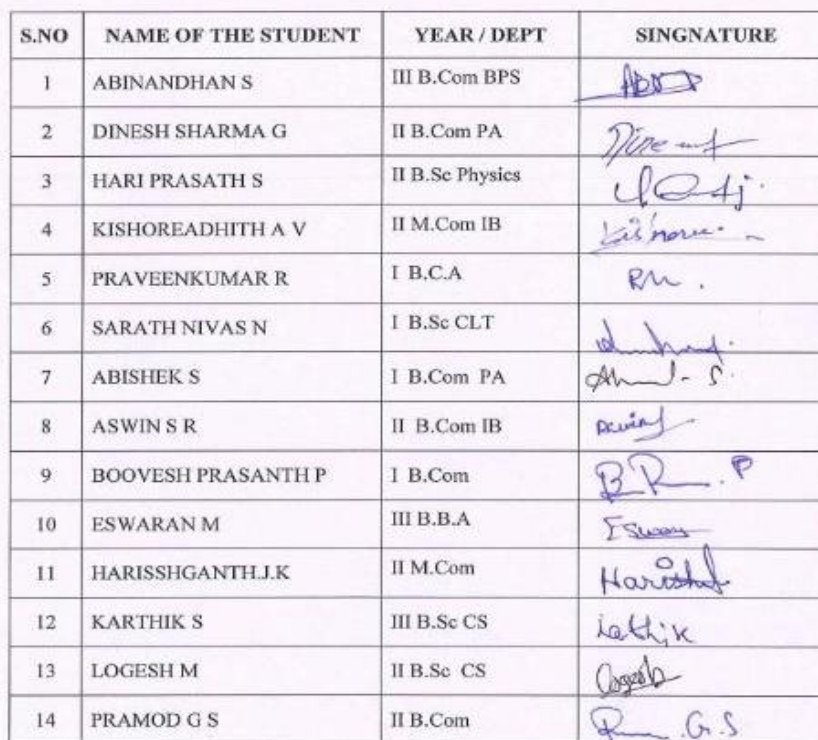 S.NO NAME OF THE STUDENT YEAR / DEPT SINGNATURE
1 ABINANDHAN S III B.Com BPS
2 DINESH SHARMA G II B.Com PA
3 HARI PRASATH S II B.Sc Physics
4 KISHOREADHITH A V II M.Com IB
5 PRAVEENKUMAR R I B.C.A
6 SARATH NIVAS N I B.Sc CLT
7 ABISHEK S I B.Com PA
8 ASWIN S R II B.Com IB
9 BOOVESH PRASANTH P I B.Com
10 ESWARAN M III B.B.A
11 HARISSHGANTH.J.K II M.Com
12 KARTHIK S III B.Sc CS
13 LOGESH M II B.Sc CS
14 PRAMOD G S II B.Com